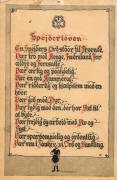 Spejderloven
En Spejders Ord staar til Troende.
Vær tro mod Konge, Fædreland, For-
ældre og Foresatte.
Vær ærlig og paalidelig.
Vær en god Kammerat.
Vær ridderlig og hjælpsom mod en-
hver.
Vær god mod Dyr.
Vær lydig mod den, der har Ret til
at byde.
Vær frejdig og arbejd med Liv og
Vær sparsommelig og
Vær ren i Tanke, Ord og Handling.